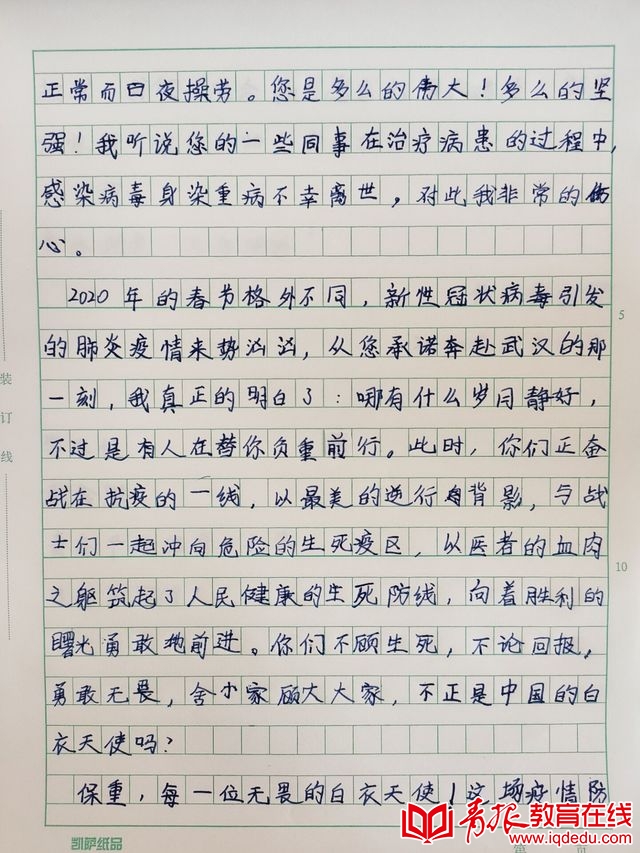 正常而日夜操劳。您是多么的伟大！多么的坚
强！我听说您的一些同事在治疗病患的过程中，
感染病毒身染重病不幸离世，对此我非常的伤
心。
2020年的春节格外不同，新性冠状病毒引发
的肺炎疫情来势汹汹，从您承诺奔赴武汉的那
一刻，我真正的明白了：哪有什么岁月静好，
不过是有人在替你负重前行。此时，你们正奋
战在抗疫的一线，以最美的逆行的背影，与战
士们一起冲向危险的生死疫区，以医者的血肉
之躯筑起了人民健康的生死防线，向着胜利的
曙光勇敢地前进。你们不顾生死，不论回报，
勇敢无畏，舍小家顾大大家，不正是中国的白
衣天使吗？
保重，每一位无畏的白衣天使！这场疫情防
5
10
装
订
线
凯萨纸品
第
页
青报教育在线
www.iqdedu.com